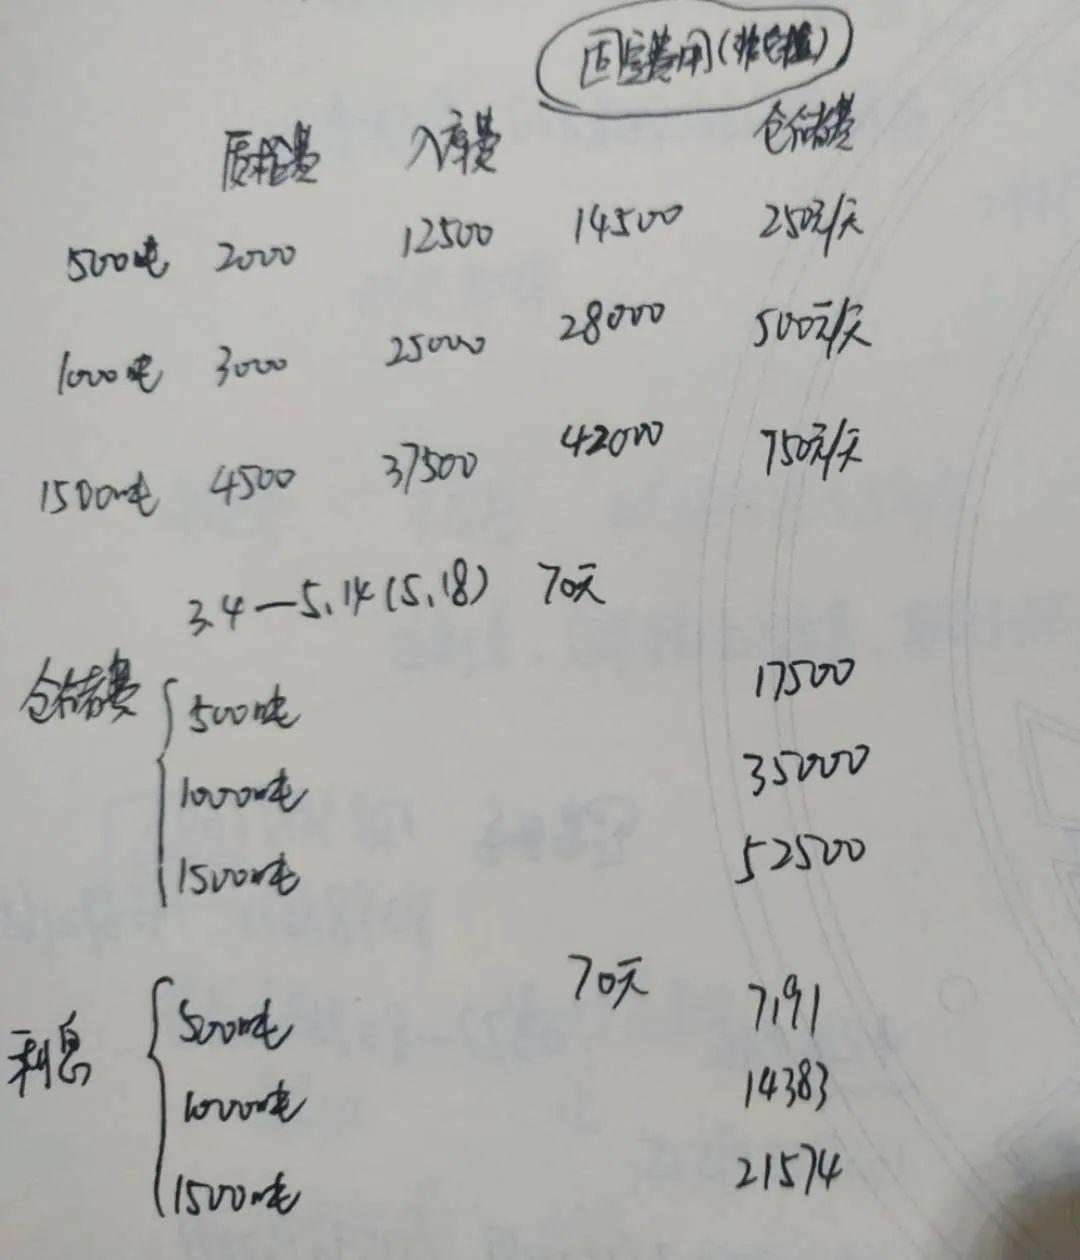 固定费用(非仓储)
质检费 入库费 仓储费
500吨 2000 12500 14500 250元/天
1000吨 3000 25000 28000 500元/天
1500吨 4500 37500 42000 750元/天
3.4—5.14(5.18) 70天
仓储费
500吨 17500
1000吨 35000
1500吨 52500
利息 70天
500吨 7191
1000吨 14383
1500吨 21574